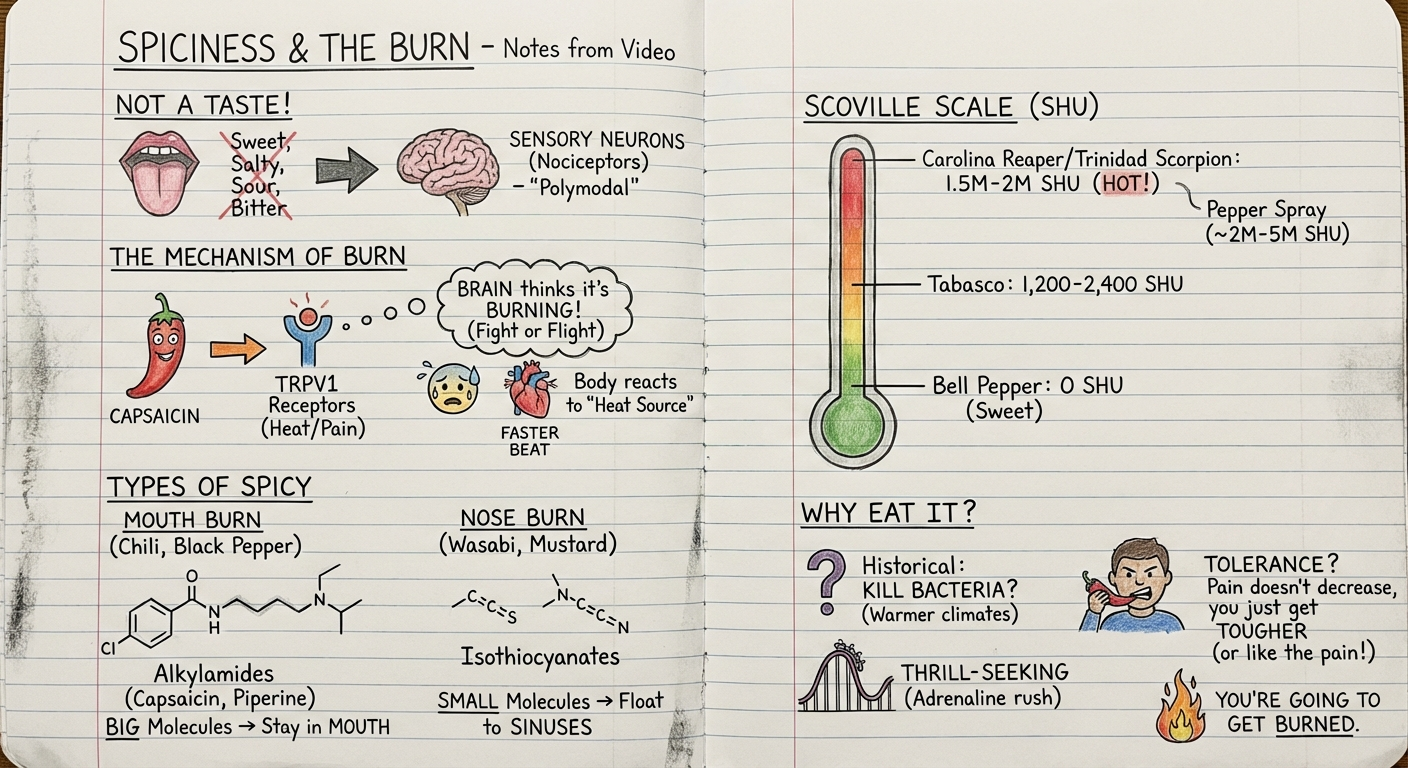 SPICINESS & THE BURN - Notes from Video
NOT A TASTE!
Sweet,
Salty,
Sour,
Bitter
SENSORY NEURONS
(Nociceptors)
- "Polymodal"
THE MECHANISM OF BURN
CAPSAICIN
TRPV1
Receptors
(Heat/Pain)
BRAIN thinks it's
BURNING!
(Fight or Flight)
FASTER
BEAT
Body reacts
to "Heat Source"
TYPES OF SPICY
MOUTH BURN
(Chili, Black Pepper)
O
N
H
N
Cl
Alkylamides
(Capsaicin, Piperine)
BIG Molecules → Stay in MOUTH
NOSE BURN
(Wasabi, Mustard)
C=C=S
N=C=N
Isothiocyanates
SMALL Molecules → Float
to SINUSES
SCOVILLE SCALE (SHU)
Carolina Reaper/Trinidad Scorpion:
1.5M-2M SHU (HOT!)
Pepper Spray
(~2M-5M SHU)
Tabasco: 1,200-2,400 SHU
Bell Pepper: 0 SHU
(Sweet)
WHY EAT IT?
?
Historical:
KILL BACTERIA?
(Warmer climates)
THRILL-SEEKING
(Adrenaline rush)
TOLERANCE?
Pain doesn't decrease,
you just get
TOUGHER
(or like the pain!)
YOU'RE GOING TO
GET BURNED.